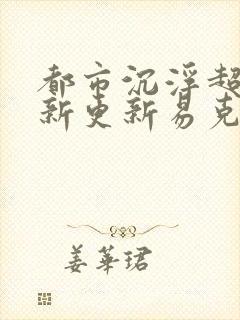 都市沉浮超
新更新易克
姜华珺